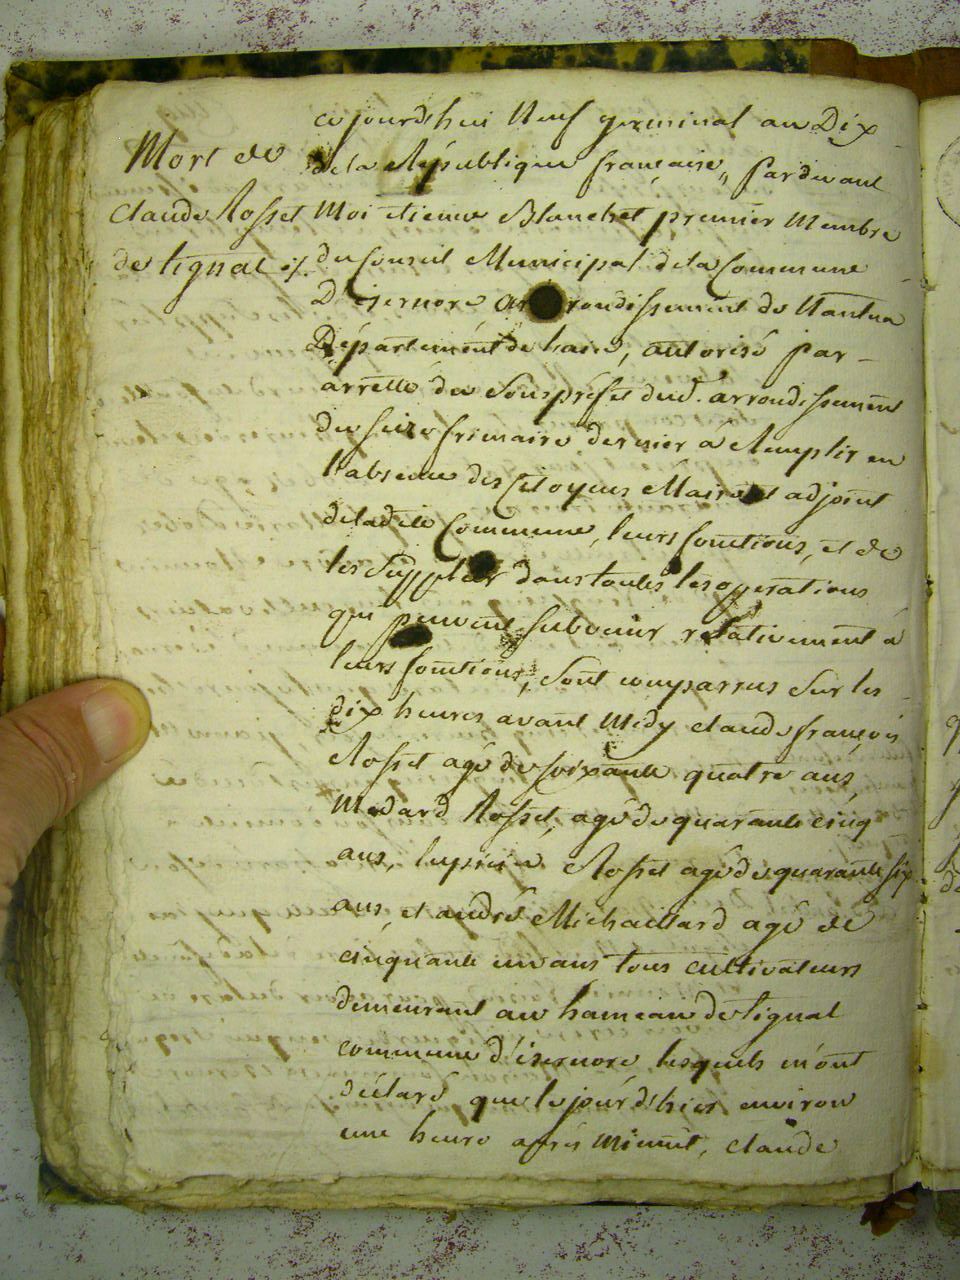 Mort de
Claude Rosset
de tignat ./.
cejourd'hui Neuf germinal an Dix
de la République française, pardevant
Moi etienne Blanchet premier Membre
du Conseil Municipal de la Commune
D'isernore arrondissement de Nantua
Département de Lain, autorisé par
arretté du Souspréfet dud. arrondissement
du seize frimaire dernier à Remplir en
l'absence des Citoyens Maire et adjoint
deladite Commune, leurs fonctions, et de
les Suppléer dans toutes les operations
qui peuvent subvenir relativement à
leurs fonctions, Sont comparus Sur les
dix heures avant Midy claude françois
Rosset agé de soixante quatre ans,
Medard Rosset, agé de quarante cinq
ans, lupicin Rosset agé de quarante six
ans, et andré Michaillard agé de
cinquante un ans tous cultivateurs
demeurant au hameau de tignat
commune d'isernore, lesquels m'ont
déclaré que le jour d'hier environ
une heure après Minuit, claude